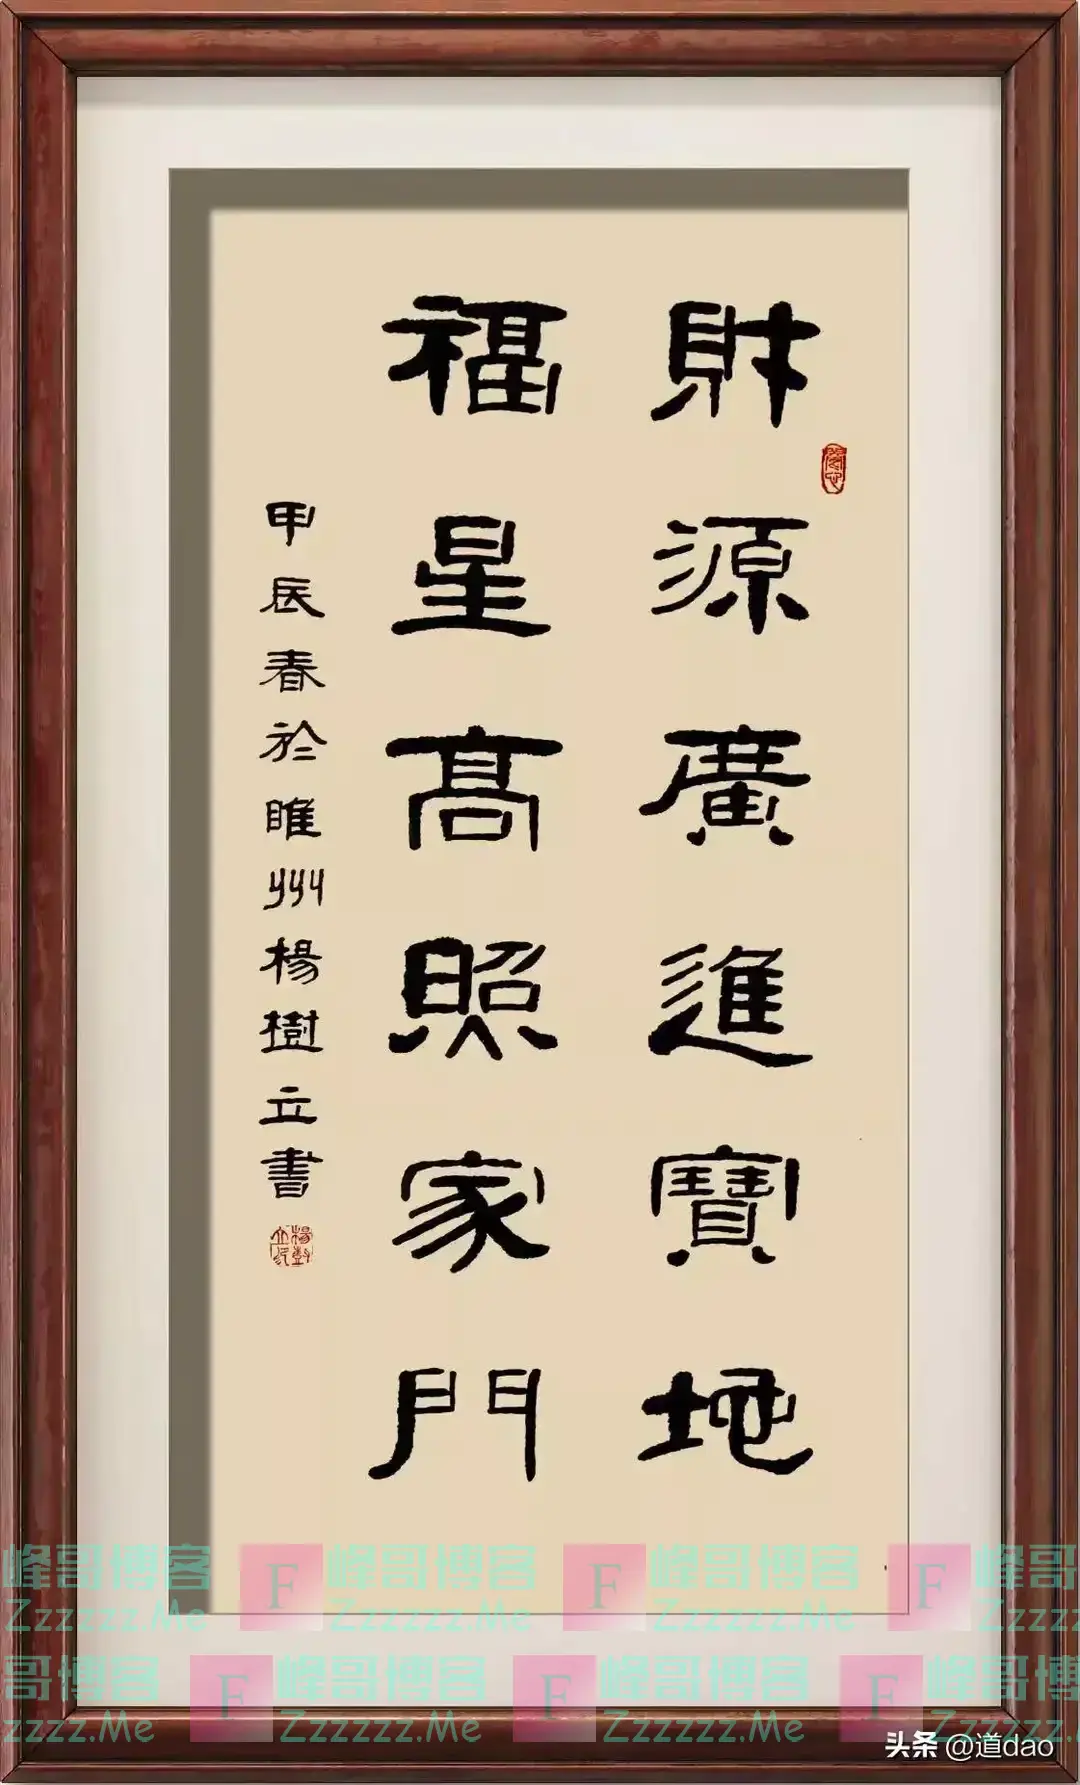 財源廣進寶地
福星高照家門
甲辰春於睢州楊樹立書
楊樹立印
峰哥博客 F 峰哥博客 F 峰哥博客 F 峰哥
Zzzzzz.Me Zzzzzz.Me Zzzzzz.Me Zzzzz
哥博客 F 峰哥博客 F 峰哥博客 F 峰哥博
Zzzzz.Me Zzzzzz.Me Zzzzzz.Me Zzzzzz.
头条 @道dao